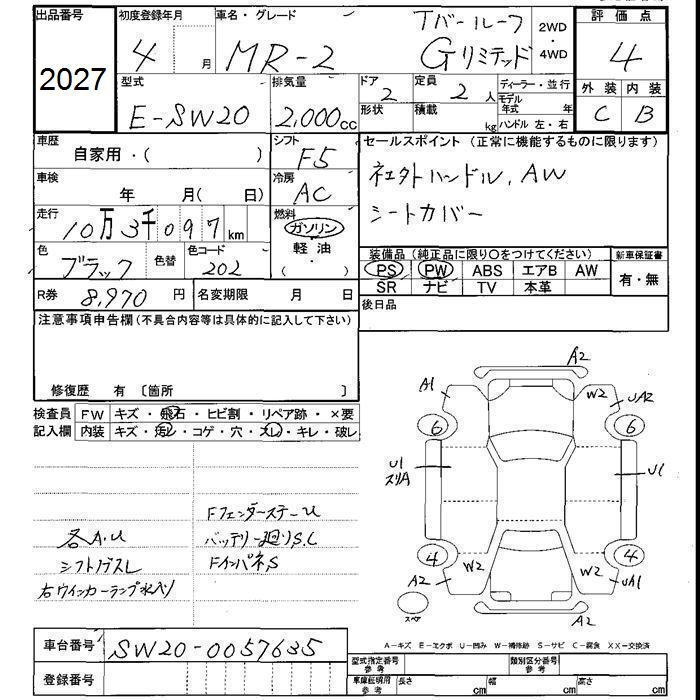 出品番号 初度登録年月 車名・グレード Tバールーフ 2WD・4WD 評価点
2027 4 月 MR-2 Gリミテッド 4
型式 排気量 ドア 定員 ディーラー・並行 外装 内装
E-SW20 2,000cc 2 2人 モデル年式 年 C B
形状 積載 kg ハンドル 左・右
車歴 シフト セールスポイント (正常に機能するものに限ります)
自家用・( ) F5
車検 冷房
年 月( 日) AC シートカバー
走行 燃料
10万3千097km ガソリン
色 色替 色コード 軽油 装備品 (純正品に限り○をつけてください) 新車保証書
ブラック 202 ( ・ ) PS PW ABS エアB AW 有・無
R券 8,970円 名変期限 月 日 SR ナビ TV 本革
後日品
注意事項申告欄 (不具合内容等は具体的に記入して下さい)
修復歴 有 〔箇所 〕
検査員 FW キズ・飛石・ヒビ割・リペア跡・×要
記入欄 内装 キズ・汚レ・コゲ・穴・スレ・キレ・破レ
A2
A1 W2 W2 UA2
6 6
U1 スリA U1
4 4
A2 W2 W2 UA1
スペア A2
FフェンダーステーU
各A.U バッテリー廻りS.C
シフトノブスレ FインパネS
右ウインカーランプ水入り
A－キズ E－エクボ U－凹ミ W－補修跡 S－サビ C－腐食 XX－交換済
車台番号 SW20-0057635
型式指定番号 参考 類別区分番号 参考
登録番号 車庫証明用 参考 長さ cm 幅 cm 高さ cm